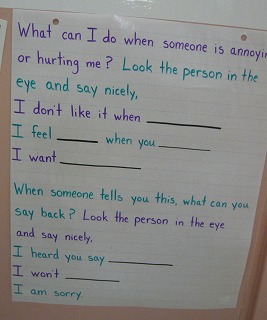 What can I do when someone is annoyin
or hurting me? Look the person in the
eye and say nicely,
I don't like it when ________
I feel ______ when you ______
I want ________
When someone tells you this, what can you
say back? Look the person in the eye
and say nicely,
I heard you say ________
I won't ________
I am sorry.